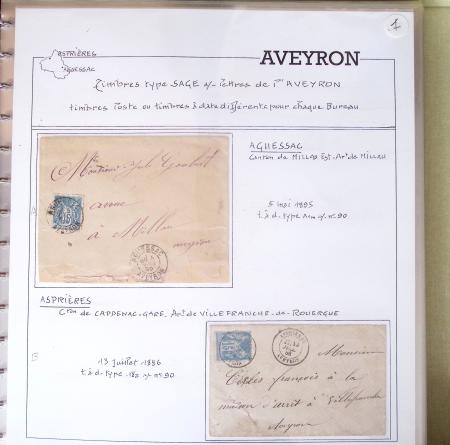 1
ASPRIÈRES
AGUESSAC
AVEYRON
Timbres type SAGE s/- lettres de l' AVEYRON
timbres Poste ou timbres à date différents pour chaque Bureau
AGUESSAC
Canton de MILLAU Est - Art de Millau
A
5 mai 1895
t.à d. type A1n s/- n° 90
à Millau
aveyron
AGUESSAC
AVEYRON
ASPRIÈRES
Cton de CAPDENAC-GARE. Art de VILLEFRANCHE-de-ROUERGUE
B
13 juillet 1886
t.à d. type 18n s/- n° 90
15
ASPRIERES
AVEYRON
Monsieur
françois à la
maison d'arrêt à Villefranche
Aveyron